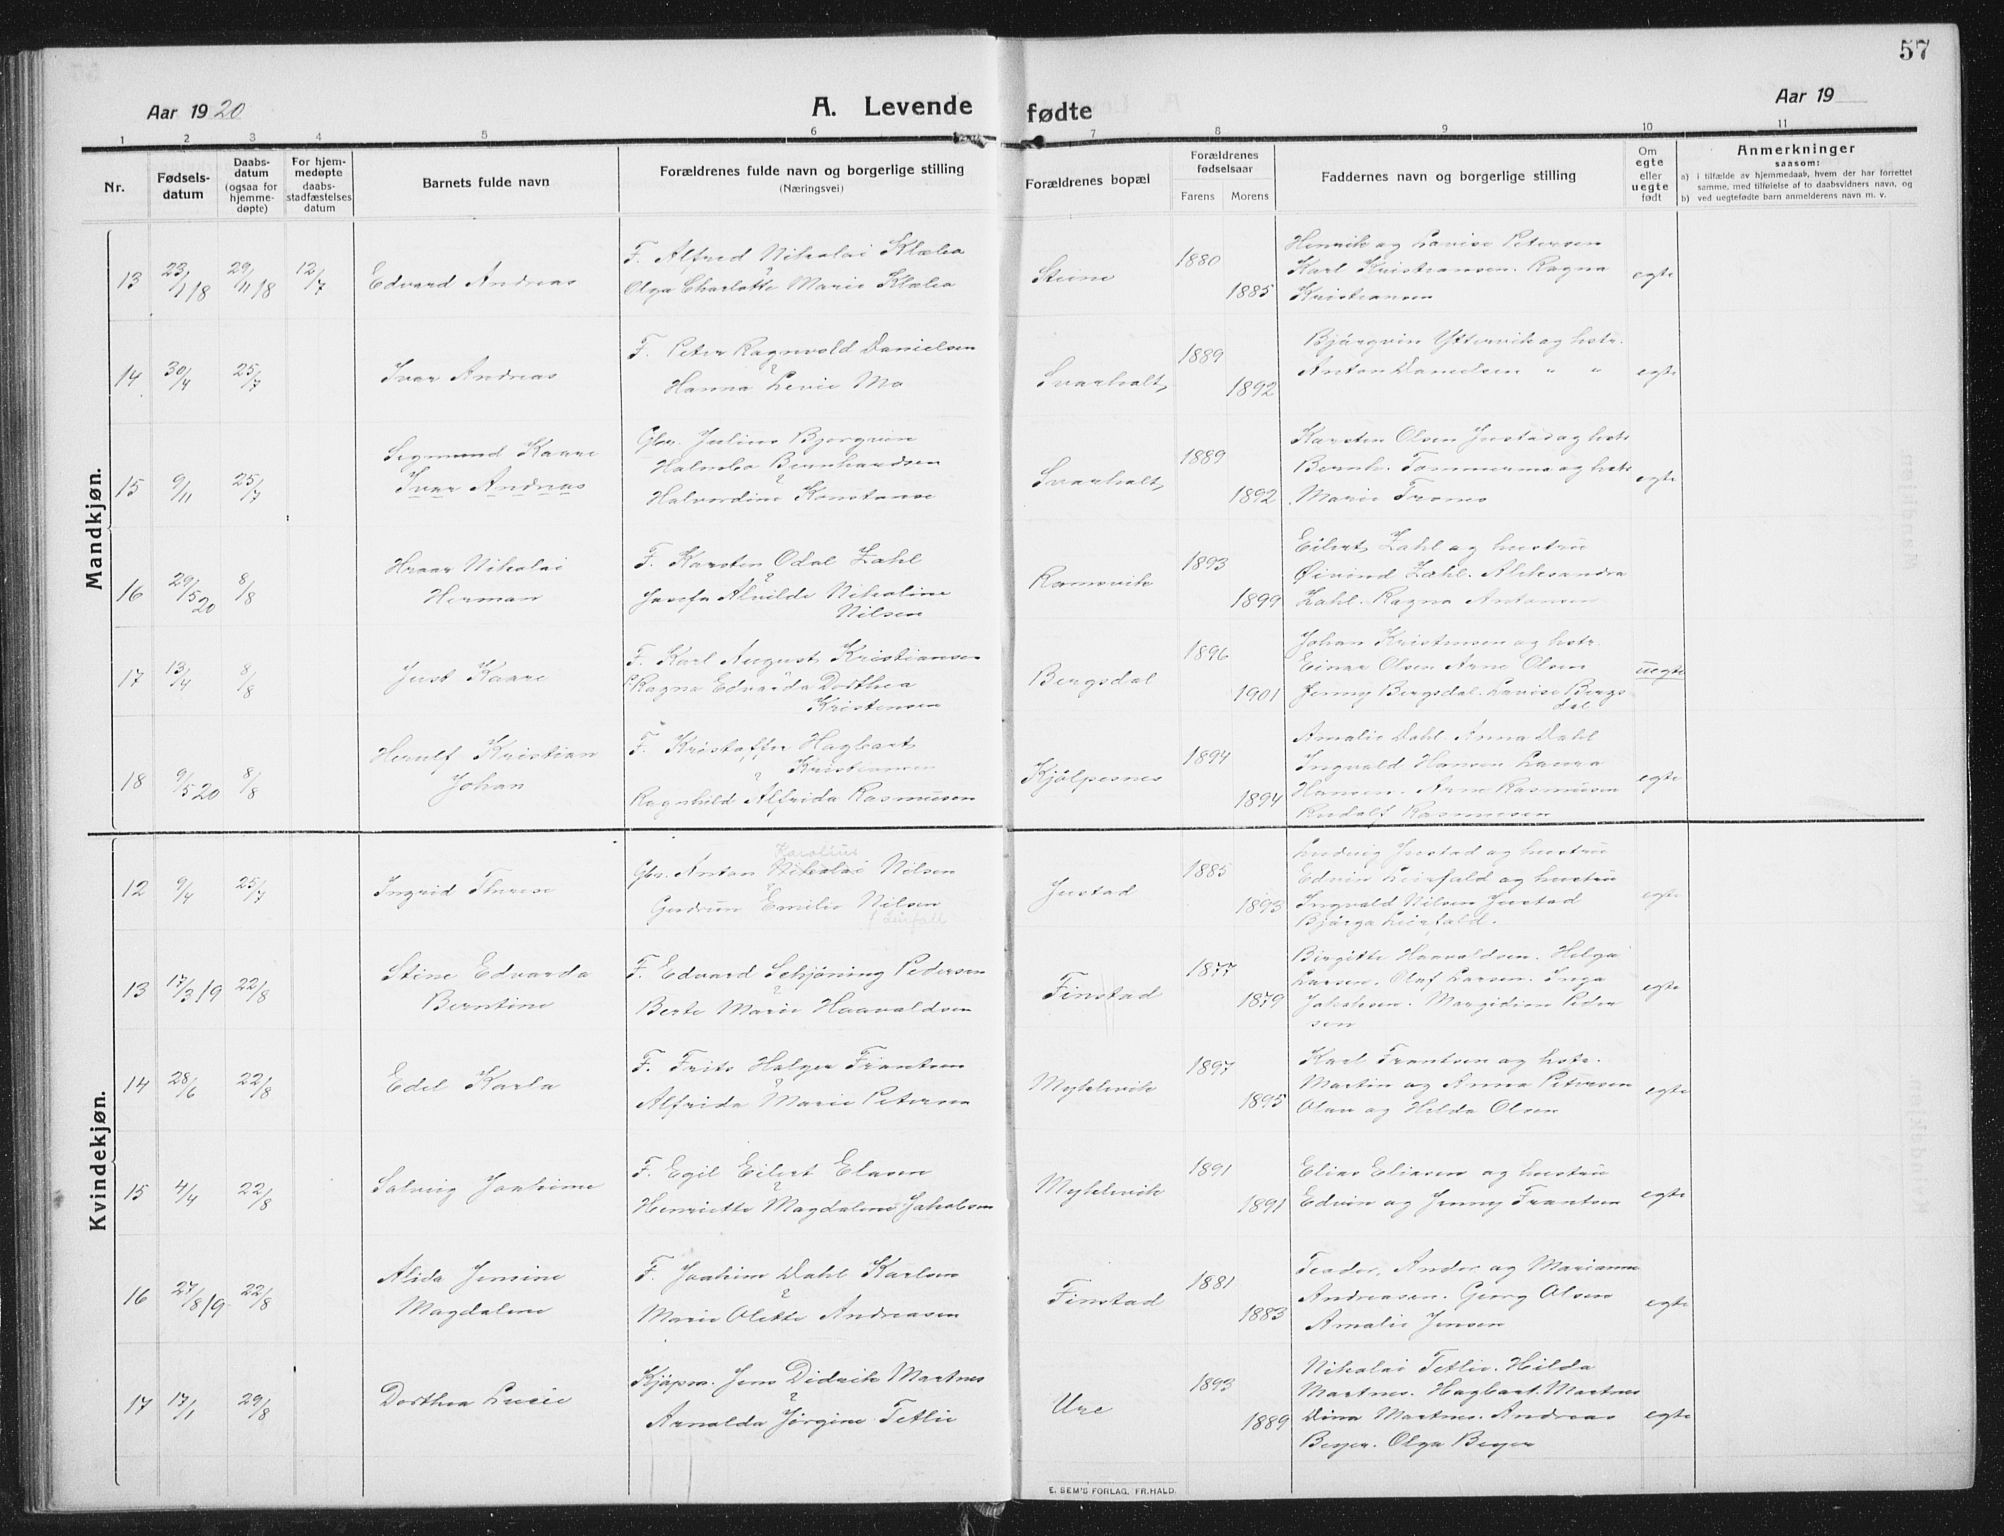 57
Aar 1920
A. Levende fødte
Aar 19
1 2 3 4 5 6 7 8 9 10 11
Nr.
Fødsels-
datum
Daabs-
datum
(ogsaa for
hjemme-
døpte)
For hjem-
medøpte
daabs-
stadfæstelses
datum
Barnets fulde navn
Forældrenes fulde navn og borgerlige stilling
(Næringsvei)
Forældrenes bopæl
Forældrenes
fødselsaar
Farens Morens
Faddernes navn og borgerlige stilling
Om
egte
eller
uegte
født
Anmerkninger
saasom:
a) i tilfælde av hjemmedaab, hvem der har forrettet
samme, med tilføielse af to daabsvidners navn, og
b) ved uegtefødte barn anmelderens navn m. v.
Mandkjøn.
13 23/1 18 29/11 18 12/7
Edvard Andreas
F. Alfred Nikolai Klæbo
Olga Charlotte Marie Klæbo
Steine
1880
1885
Henrik og Lovise Petersen
Karl Kristiansen. Ragna
Kristiansen
egte
14 30/4 25/7
Ivar Andreas
F. Peter Ragnvald Danielsen
Hanna Levie Mo
Svarholt
1889
1892
Bjørgvin Yttervik og hstr.
Anton Danielsen " "
egte
15 9/11 25/7
Sigmund Kaare
Ivar Andreas
Gbr. Julius Bjorgvin
Bernhardsen
Halvordine Konstanse
Svarholt
1889
1892
Karsten Olsen Justad og hstr
Bernh. Tommermo og hstr
Marie Trones
egte
16 29/5 20 8/8
Hroar Nikolai
Herman
F. Karsten Odal Zahl
Josefa Alvilde Nikoline
Nilsen
Ramsvik
1893
1899
Eilert Zahl og hustru
Øivind Zahl. Aleksandra
Zahl. Ragna Antonsen
17 13/4 8/8
Just Kaare
F. Karl August Kristiansen
P. Ragna Edvarda Dorthea
Kristensen
Bergsdal
1896
1901
Johan Kristensen og hstr.
Einar Olsen Arne Olsen
Jenny Bergsdal. Lovise Bergs
dal
uegte
18 9/5 20 8/8
Herulf Kristian
Johan
F. Kristoffer Hagbart
Kristiansen
Ragnhild Alfrida Rasmussen
Kjølpesnes
1894
1894
Amalie Dahl. Anna Dahl
Ingvald Hansen Laura
Hansen. Arne Rasmussen
Rudolf Rasmussen
egte
Kvindekjøn.
12 9/4 25/7
Ingrid Therese
Karolius
Gbr. Anton Nikolai Nilsen
Gudrun Emilie Nilsen
f. Leirfall
Justad
1885
1893
Ludvig Justad og hustru
Edvin Leirfald og hustru
Ingvald Nilsen Justad
Bjørga Leirfald.
egte
13 17/3 19 22/8
Stine Edvarda
Berntine
F. Edvard Schjøning Pedersen
Berte Marie Haavaldsen
Finstad
1877
1879
Birgitte Haavaldsen. Helga
Larsen. Olaf Larsen. Inga
Jakobsen. Margidion Peder
sen
egte
14 28/6 22/8
Edel Karla
F. Frits Holger Frantsen
Alfrida Marie Petersen
Myklevik
1897
1895
Karl Frantsen og hstr.
Martin og Anna Petersen
Olav og Hilda Olsen
egte
15 4/4 22/8
Solveig Joakime
F. Egil Eilert Elasen
Henriette Magdalene Jakobsen
Myklevik
1891
1891
Elias Eliasen og hustru
Edvin og Jenny Frantsen
egte
16 27/8 19 22/8
Alida Jensine
Magdalene
F. Joakim Dahl Karlsen
Marie Olette Andreasen
Finstad
1881
1883
Teodor, Andor og Marianne
Andreasen. Georg Olsen
Amalie Jensen
egte
17 17/1 29/8
Dorthea Lucie
Kjøpm. Jens Didrik Martnes
Arnolda Jørgine Tetlie
Ure
1893
1889
Nikolai Tetlie. Hilda
Martnes. Hagbart Martnes
Dina Martnes. Andreas
Beyer. Olga Beyer
egte
E. SEM'S FORLAG, FR.HALD.